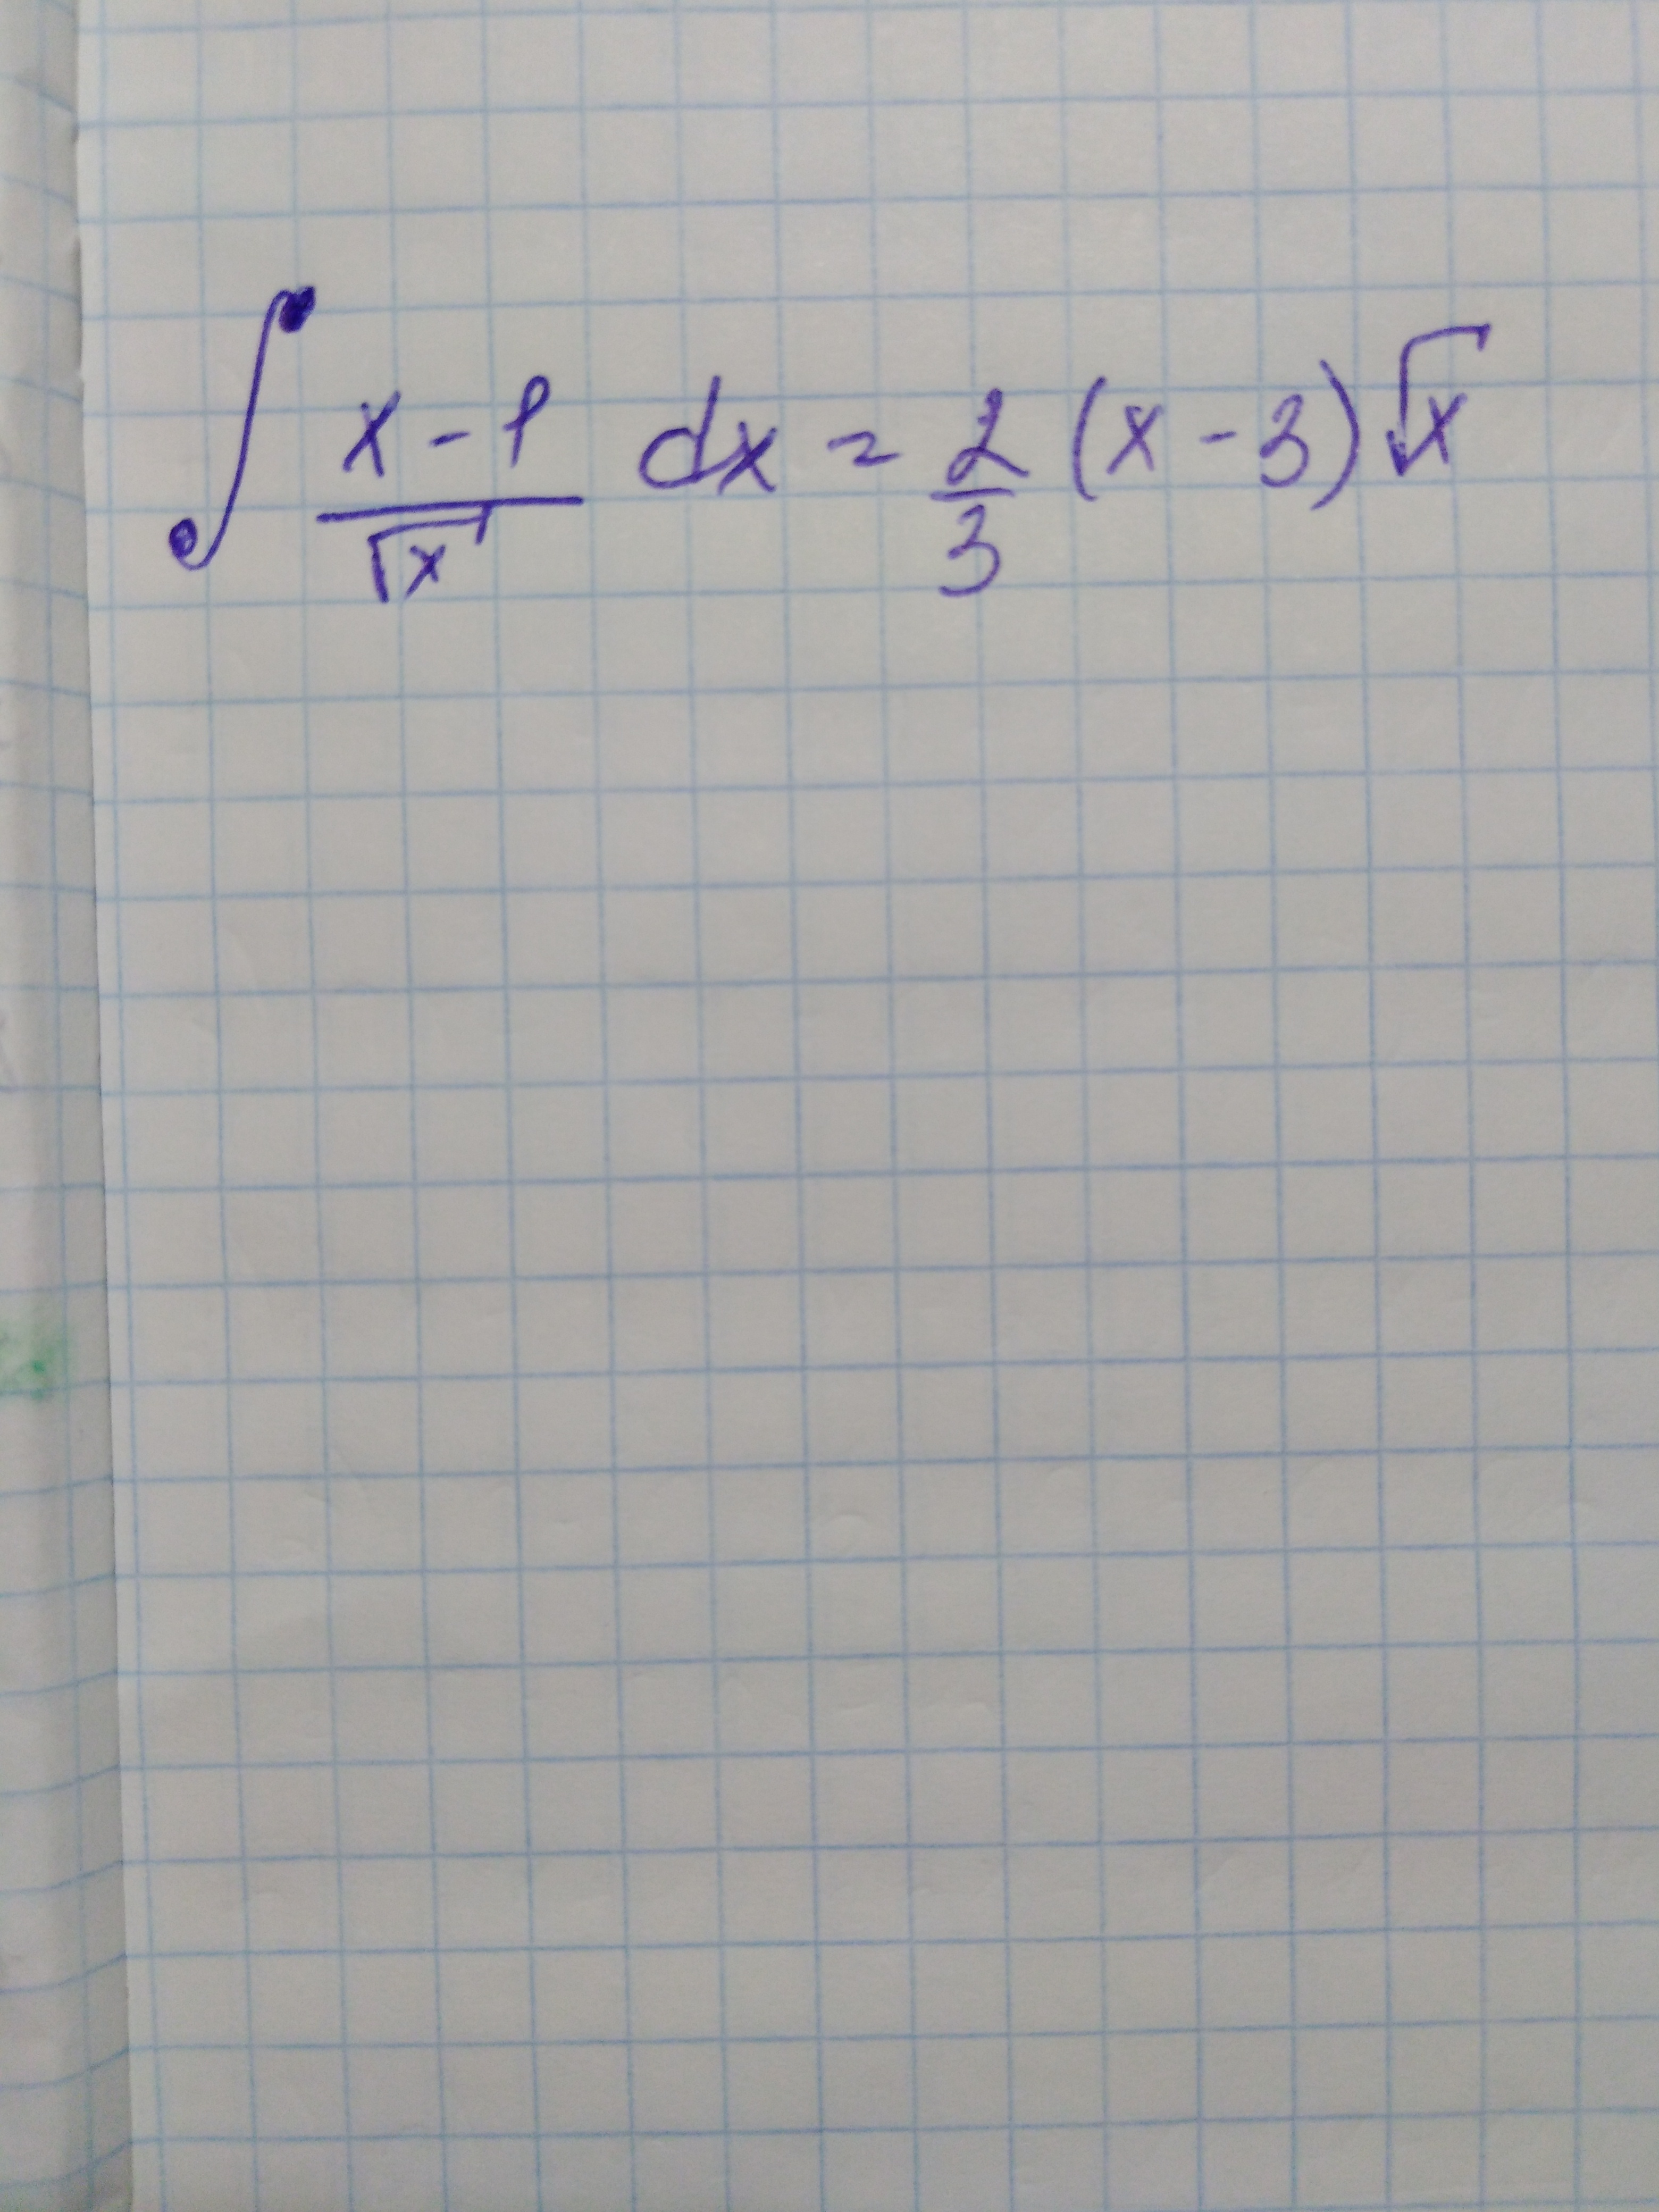 ∫ (x-1)/√x dx = 2/3 (x-3)√x